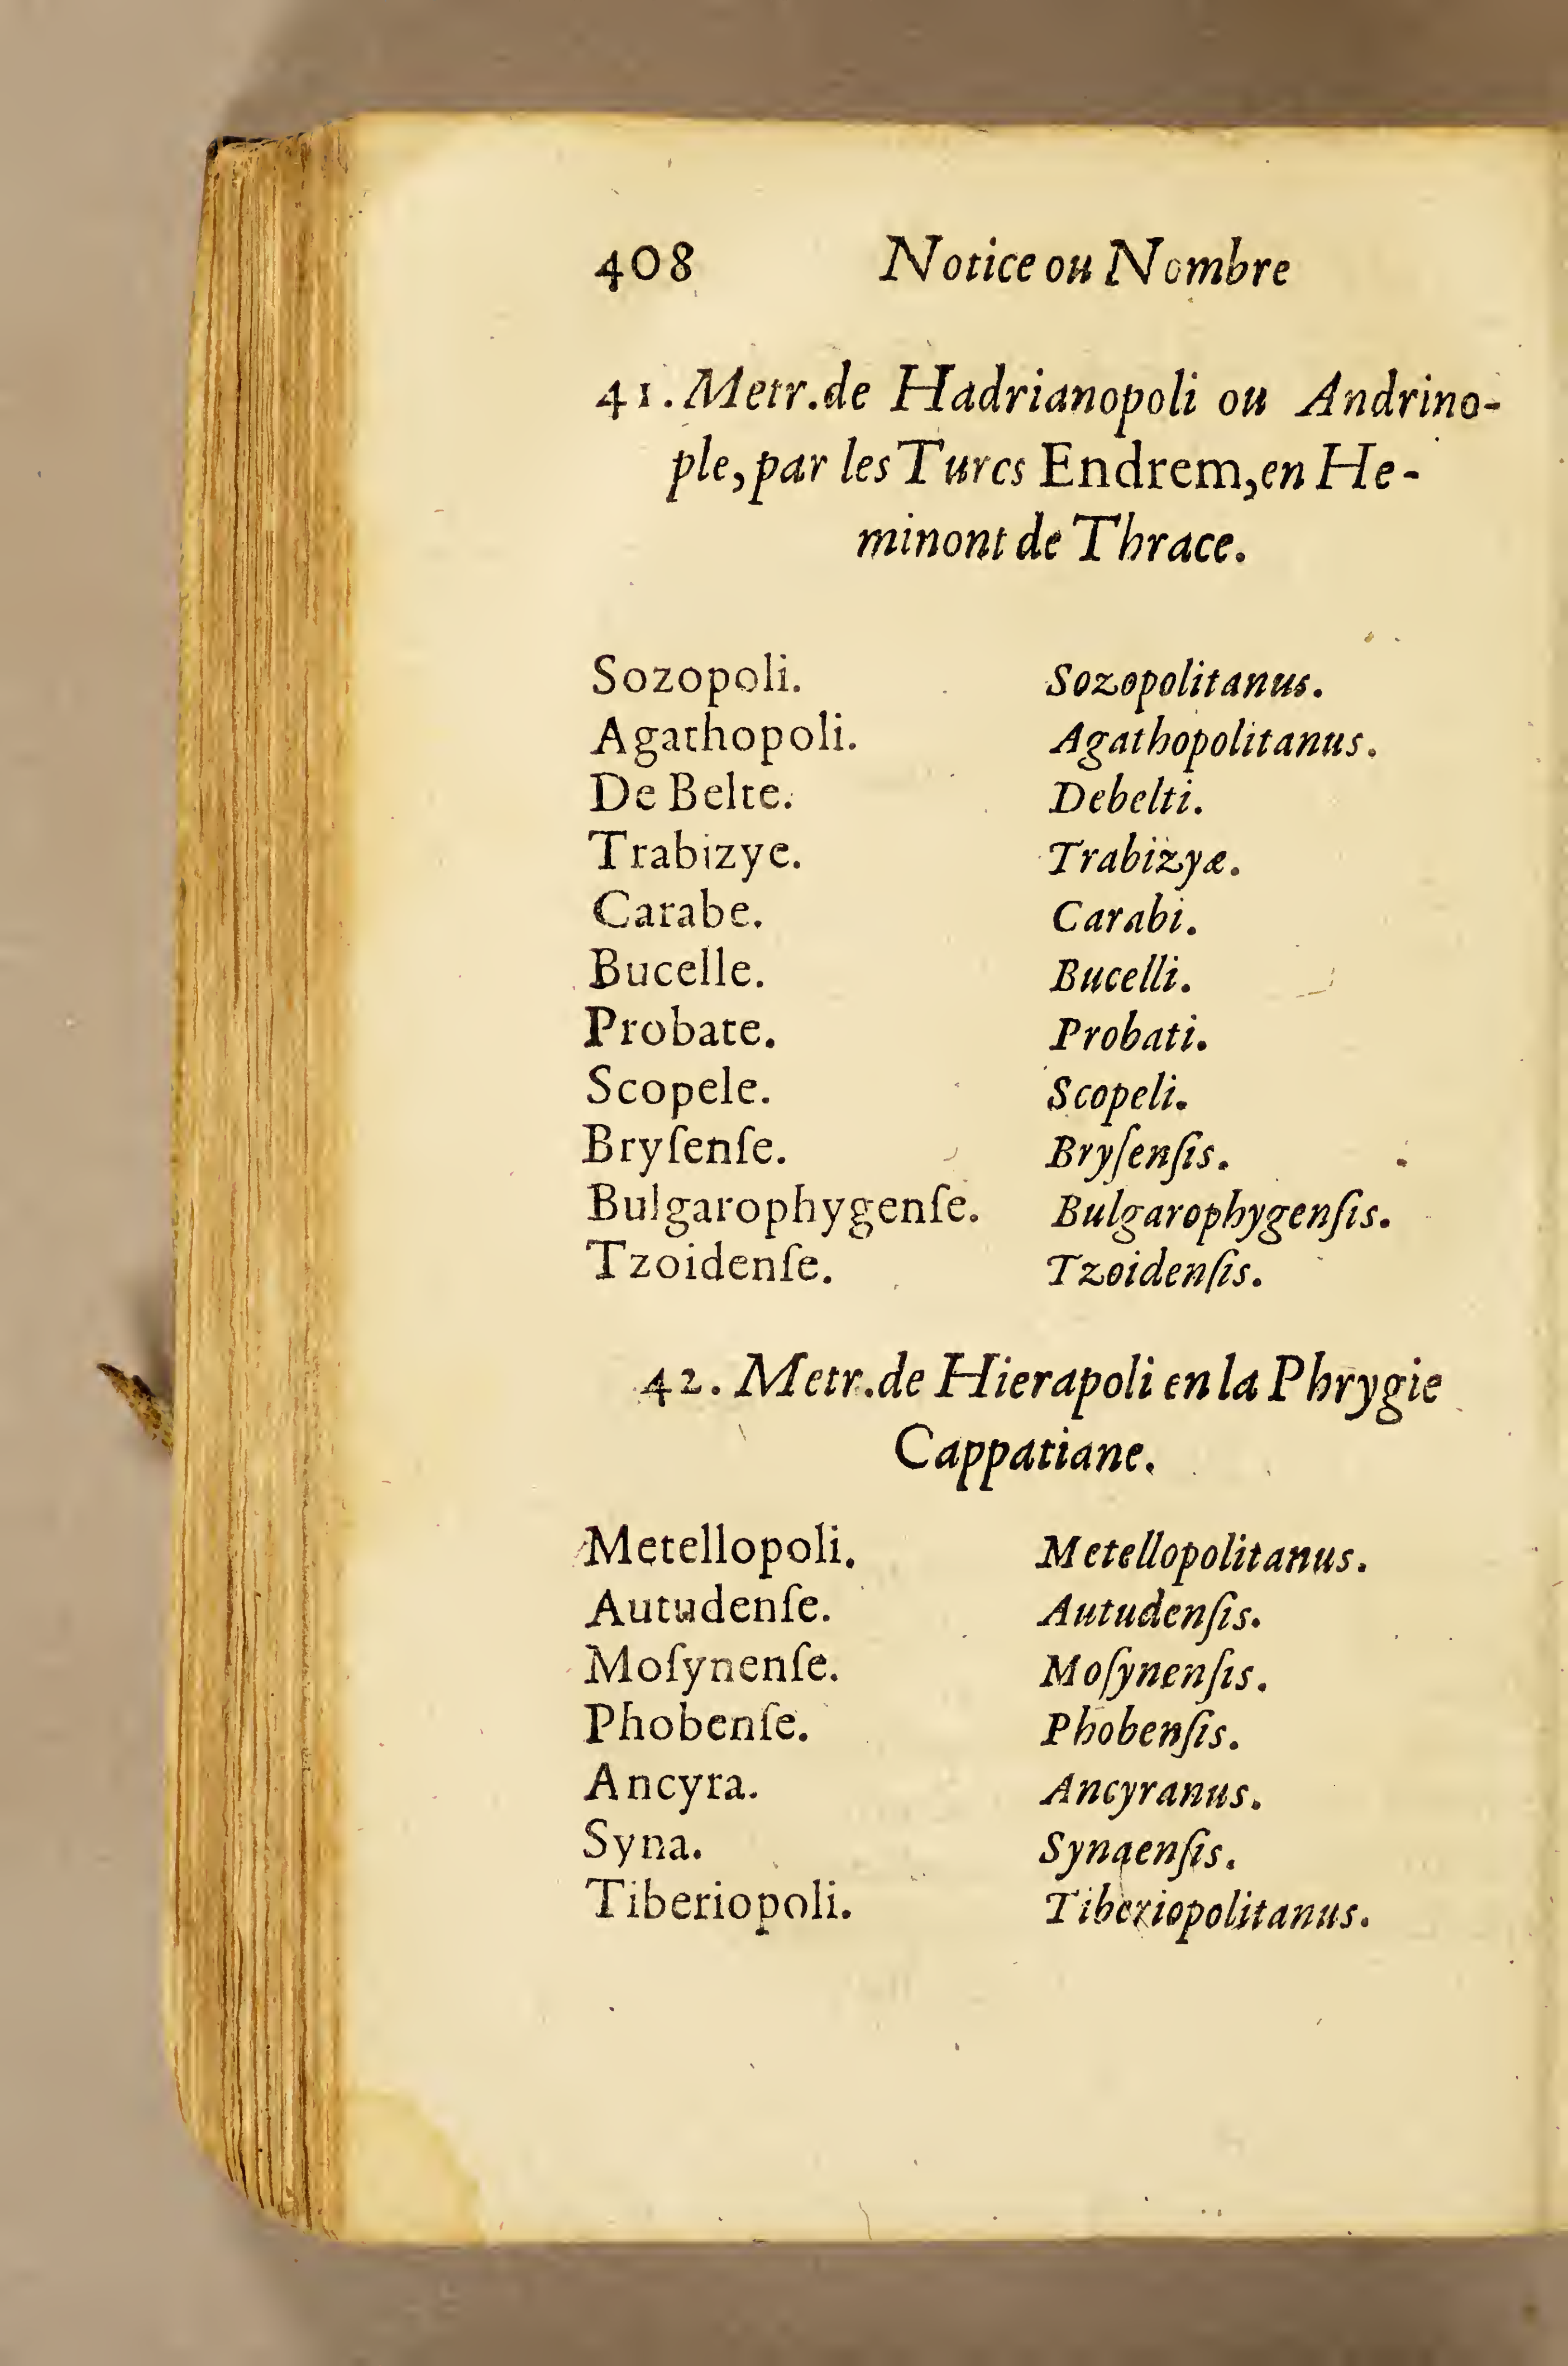 408 Notice ou Nombre
41. Metr. de Hadrianopoli ou Andrino-
ple, par les Turcs Endrem, en He-
minont de Thrace.
Sozopoli. Sozopolitanus.
Agathopoli. Agathopolitanus.
De Belte. Debelti.
Trabizye. Trabizyæ.
Carabe. Carabi.
Bucelle. Bucelli.
Probate. Probati.
Scopele. Scopeli.
Bryſenſe. Bryſenſis.
Bulgarophygenſe. Bulgarophygenſis.
Tzoidenſe. Tzoidenſis.
42. Metr. de Hierapoli en la Phrygie
Cappatiane.
Metellopoli. Metellopolitanus.
Autudenſe. Autudenſis.
Moſynenſe. Moſynenſis.
Phobenſe. Phobenſis.
Ancyra. Ancyranus.
Syna. Synaenſis.
Tiberiopoli. Tiberiopolitanus.